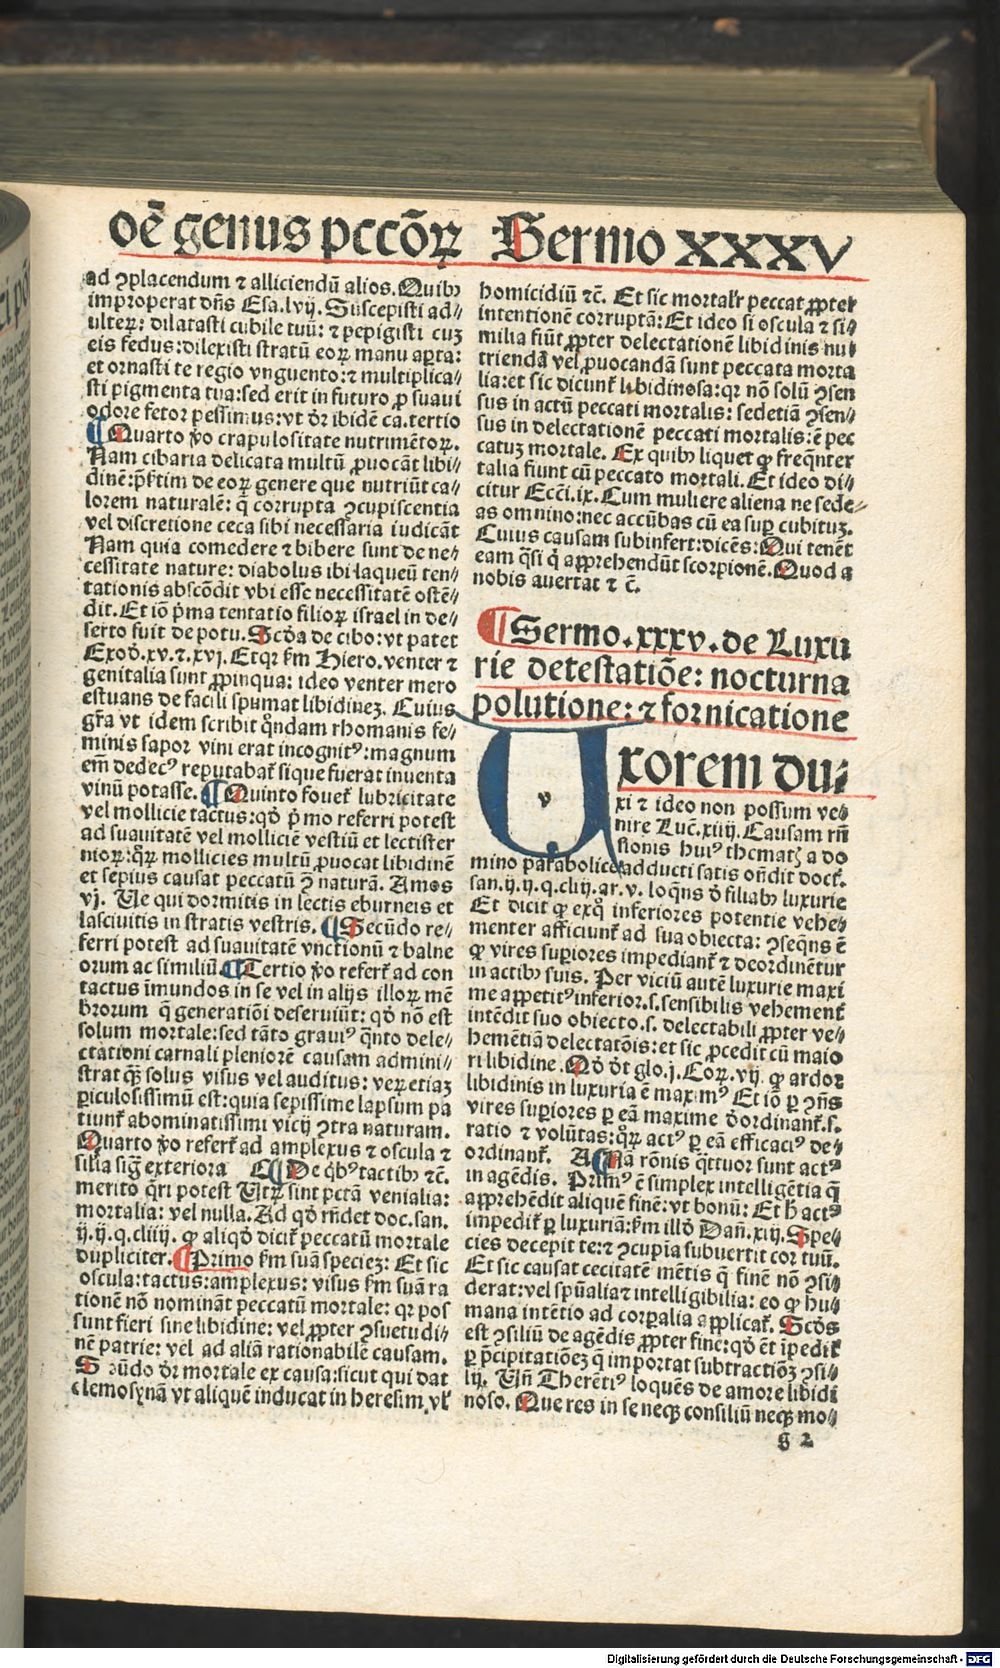 oē genus pccōꝝ Sermo XXXV
ad ꝯplacendum ⁊ alliciendū alios. Quibꝫ
improperat dn̄s Esa.lvij. Suscepisti ad⸗
ulteꝝ: dilatasti cubile tuū: ⁊ pepigisti cuꝫ
eis fedus: dilexisti stratū eoꝝ manu aꝑta:
et ornasti te regio vnguento: ⁊ multiplica⸗
sti pigmenta tua: sed erit in futuro ꝓ suaui
odore fetor pessimus: vt dr̄ ibidē ca. tertio
¶ Quarto ꝟo crapulositate nutrimētoꝝ.
Nam cibaria delicata multū ꝓuocāt libi⸗
dinē: p̄ẜtim de eoꝝ genere que nutriūt ca⸗
lorem naturalē: q̄ corrupta ꝯcupiscentia
vel discretione ceca sibi necessaria iudicāt
Nam quia comedere ⁊ bibere sunt de ne⸗
cessitate nature: diabolus ibi laqueū ten⸗
tationis abscōdit vbi esse necessitatē ostē⸗
dit. Et iō p̄ma tentatio filioꝝ israel in de⸗
serto fuit de potu. Scd̄a de cibo: vt patet
Exod̄.xv.⁊.xvj. Etqꝛ ẜm Hiero. venter ⁊
genitalia sunt ꝓpinqua: ideo venter mero
estuans de facili spumat libidineꝫ. Cuius
gr̄a vt idem scribit q̄ndam rhomanis fe⸗
minis sapor vini erat incognitꝰ: magnum
em̄ dedecꝰ reputabat̄ si que fuerat inuenta
vinū potasse. ¶ Quinto fouet̄ lubricitate
vel mollicie tactus: qd̄ p̄mo referri potest
ad suauitatē vel molliciē vestiū et lectister
nioꝝ: qꝛ̄ mollicies multū ꝓuocat libidinē
et sepius causat peccatū ꝯ̄ naturā. Amos
vj. Ve qui dormitis in lectis eburneis et
lasciuitis in stratis vestris. ¶ Secūdo re⸗
ferri potest ad suauitatē vnctionū ⁊ balne
orum ac similiū. ¶ Tertio ꝟo refert̄ ad con
tactus īmundos in se vel in alijs illoꝝ mē
brorum q̄ generatiōi deseruiūt: qd̄ nō est
solum mortale: sed tāto grauiꝰ q̄nto dele⸗
ctationi carnali pleniorē causam admini⸗
strat qꝫ̄ solus visus vel auditus: veꝝ etiaꝫ
ꝑiculosissimū est: quia sepissime lapsum pa
tiunt̄ abominatissimi vicij ꝯtra naturam.
Quarto ꝟo refert̄ ad amplexus ⁊ oscula ⁊
sil̄ia siḡ exteriora ¶ De qꝰbꝫ tactibꝫ ⁊c̄.
merito q̄ri potest Vtꝝ sint pctā venialia:
mortalia: vel nulla. Ad qd̄ rn̄det doc. san.
ij.ij.q.cliiij. ꝙ aliqd̄ dicit̄ peccatū mortale
dupliciter. ¶ Primo ẜm suā specieꝫ: Et sic
oscula: tactus: amplexus: visus ẜm suā ra
tionē nō nomināt peccatū mortale: qꝛ pos
sunt fieri sine libidine: vel ꝓpter ꝯsuetudi⸗
nē patrie: vel ad aliā rationabilē causam.
Secūdo dr̄ mortale ex causa: sicut qui dat
elemosynā vt aliquē inducat in heresim. vl̄
homicidiū ⁊c̄. Et sic mortalr̄ peccat ꝓpter
intentionē corruptā: Et ideo si oscula ⁊ si⸗
milia fiūt ꝓpter delectationē libidinis nu⸗
triendā vel ꝓuocandā sunt peccata morta
lia: et sic dicunt̄ libidinosa: qꝛ nō solū ꝯsen
sus in actū peccati mortalis: sed etiā ꝯsen⸗
sus in delectationē peccati mortalis: ē pec
catuꝫ mortale. Ex quibꝫ liquet ꝙ freqn̄ter
talia fiunt cū peccato mortali. Et ideo di⸗
citur Ecc̄i.ix. Cum muliere aliena ne sede⸗
as omnino: nec accūbas cū ea suꝑ cubituꝫ.
Cuius causam subinfert: dicēs: Qui tenēt
eam q̄si q̄ apprehendūt scorpionē. Quod a
nobis auertat ⁊ c̄.
¶ Sermo.xxxv.de Luxu
rie detestatiōe: nocturna
polutione: ⁊ fornicatione
Uxorem du⸗
v
xi ⁊ ideo non possum ve⸗
nire Luc̄.xiiij. Causam rn̄
sionis huiꝰ thematꝭ a do
mino parabolice adducti satis ondit doct̄.
san.ij.ij.q.cliij.ar.v. loqn̄s d̄ filiabꝫ luxurie
Et dicit ꝙ exqͦ inferiores potentie vehe⸗
menter afficiunt̄ ad sua obiecta: ꝯseqn̄s ē
ꝙ vires suꝑiores impediant̄ ⁊ deordinētur
in actibꝫ suis. Per viciū autē luxurie maxi
me appetitꝰ inferior.s.sensibilis vehement̄
intēdit suo obiecto.s. delectabili ꝓpter ve⸗
hemētiā delectatōis: et sic ꝓcedit cū maio
ri libidine. Qd̄ dt̄ glo.j. Coꝝ.vij. ꝙ ardor
libidinis in luxuria ē maximꝰ Et iō ꝑ ꝯn̄s
vires suꝑiores ꝑ eā maxime d̄ordinant̄.s.
ratio ⁊ volūtas: qꝛ̄ actꝰ ꝑ eā efficaciꝰ de⸗
ordinant̄. ¶ Nā rōnis q̄ttuor sunt actꝰ
in agēdis. Primꝰ ē simplex intelligētia q̄
apprehēdit aliquē finē: vt bonū: Et h̄ actꝰ
impedit̄ ꝑ luxuriā: ẜm illd̄ Dan̄.xiij. Spe⸗
cies decepit te: ⁊ ꝯcupīa subuertit cor tuū.
Et sic causat cecitatē mētis q̄ finē nō ꝯsi⸗
derat: vel spūalia ⁊ intelligibilia: eo ꝙ hu⸗
mana intētio ad corꝑalia applicat̄. Scd̄s
est ꝯsiliū de agēdis ꝓpter finē: qd̄ ēt īpedit̄
ꝑ p̄cipitatiōeꝫ q̄ importat subtractiōꝫ ꝯsi⸗
lij. Vn̄ Therētiꝰ loquēs de amore libidi
noso. Que res in se neqꝫ consiliū neqꝫ mo⸗
g 2
Digitalisierung gefördert durch die Deutsche Forschungsgemeinschaft - DFG